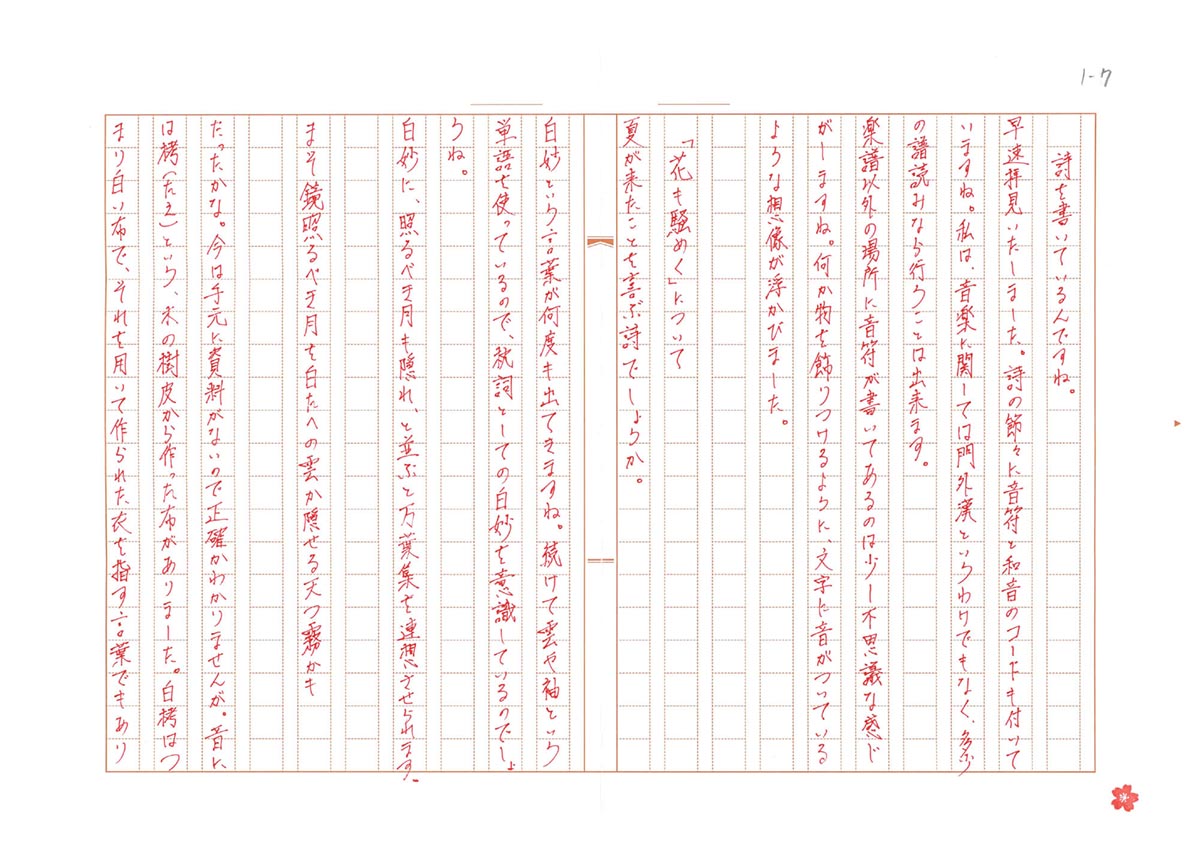 1-7
詩を書いているんですね。
早速拝見いたしました。詩の節々に音符と和音のコードも付いて
いますね。私は、音楽に関しては門外漢というわけでもなく、多少
の譜読みなら行うことは出来ます。
楽譜以外の場所に音符が書いてあるのは少し不思議な感じ
がしますね。何か物を飾りつけるように、文字に音がついている
ような想像が浮かびました。
「花も騒めく」について
夏が来たことを喜ぶ詩でしょうか。
白妙という言葉が何度も出てきますね。続けて雲や袖という
単語を使っているので、枕詞としての白妙を意識しているのでしょ
うね。
白妙に、照るべき月も隠れ、と並ぶと万葉集を連想させられます。
まそ鏡照るべき月を白たへの雲か隠せる天つ霧かも
だったかな。今は手元に資料がないので正確かわかりませんが。昔に
は栲(たえ)という、木の樹皮から作った布がありました。白栲はつ
まり白い布で、それを用いて作られた衣を指す言葉でもあり